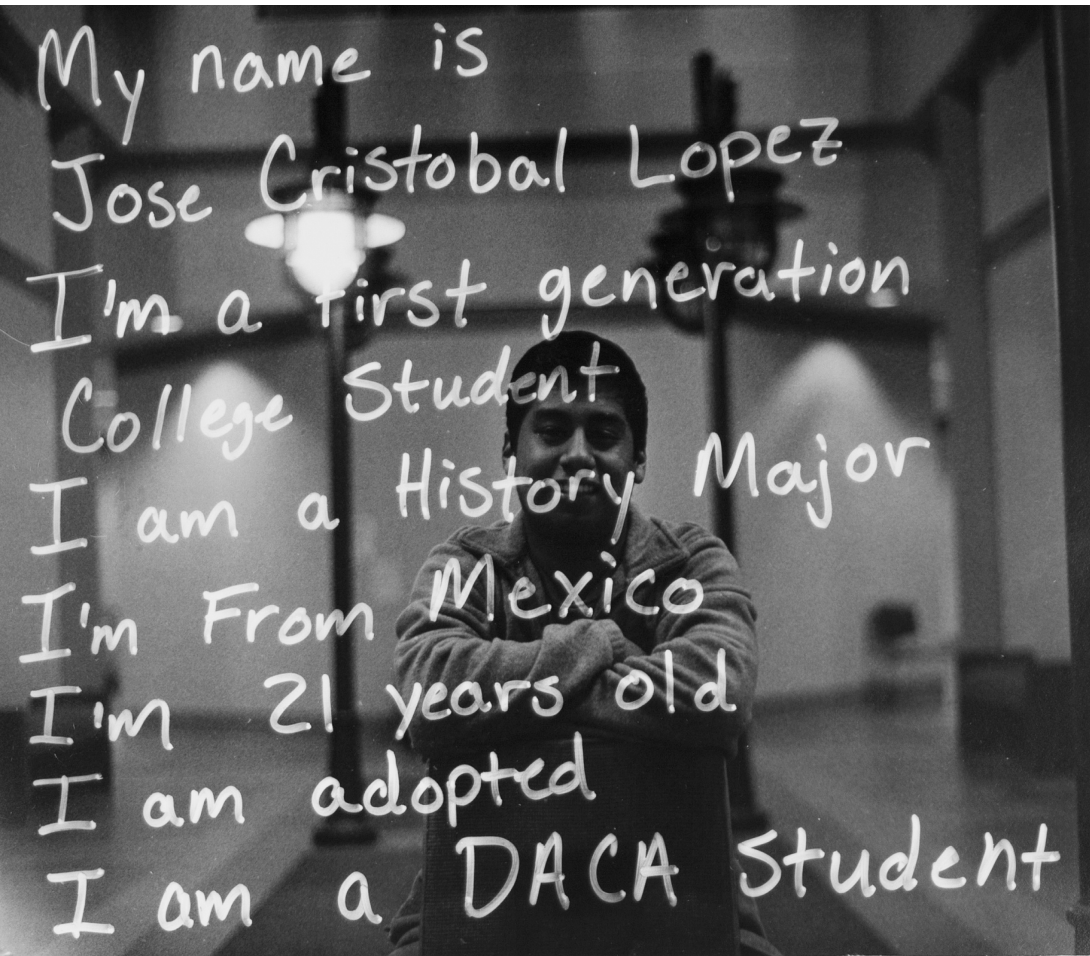 My name is
Jose Cristobal Lopez
I'm a first generation
College Student
I am a History Major
I'm From Mexico
I'm 21 years old
I am adopted
I am a DACA Student